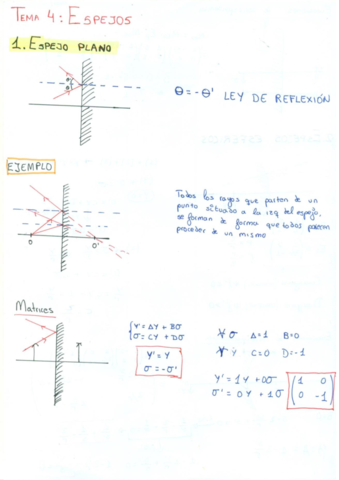 TEMA 4: ESPEJOS
1. ESPEJO PLANO
θ = -θ' LEY DE REFLEXIÓN
EJEMPLO
Todos los rayos que parten de un
punto situado a la izq del espejo,
se forman de forma que todos parecen
proceder de un mismo
O O'
Matrices
Y' = AY + Bσ
σ = CY + Dσ
Y' = Y
σ = -σ'
∀ σ A=1 B=0
∀ Y C=0 D=-1
Y' = 1Y + 0σ
σ' = 0Y + 1σ
(1 0
0 -1)